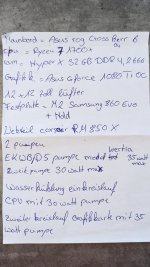 Mainbord = Asus rog Cross 6
cpu = Ryzen 7 1700x
ram = HyperX 32GB DDR4, 2666
Grafik = Asus Gforce 1080Ti OC
12 x 12 Zoll lüfter
Festplatte = M2 Samsung 860 Evo
+ Hdd
Netzteil corsair RM 850X
2 pumpen
EKWB/D5 pumpe 35 watt max
zweite pumpe 30 watt max
Wasserkühlung ein kreislauf
CPU mit 30 watt pumpe
zweiter kreislauf Grafikkarte mit 35
watt pumpe